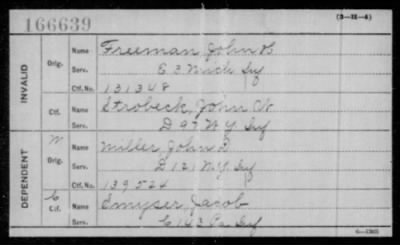 166639
(3-II-4)
INVALID
Orig.
Name Freeman, John B
Serv. E 3 Mich Inf
Ctf. No. 131348
Ctf.
Name Strobeck, John W
Serv. D 97 N Y Inf
DEPENDENT
W
Orig.
Name Miller, John D
Serv. D 121 N.Y. Inf
Ctf. No. 139524
C
Ctf.
Name Smyser, Jacob
Serv. C 143 Pa. Inf